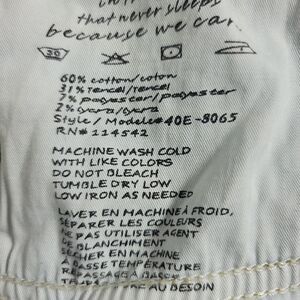 that never sleeps
because we car
30
60% cotton/coton
31% tencel/tencel
7% polyester/polyester
2% lycra/lycra
Style / Modele# 40E-8065
RN# 114542
MACHINE WASH COLD
WITH LIKE COLORS
DO NOT BLEACH
TUMBLE DRY LOW
LOW IRON AS NEEDED
LAVER EN MACHINE À FROID,
SÉPARER LES COULEURS
NE PAS UTILISER AGENT
DE BLANCHIMENT
SÉCHER EN MACHINE
À BASSE TEMPÉRATURE
REPASSAGE À BASSE
AU BESOIN